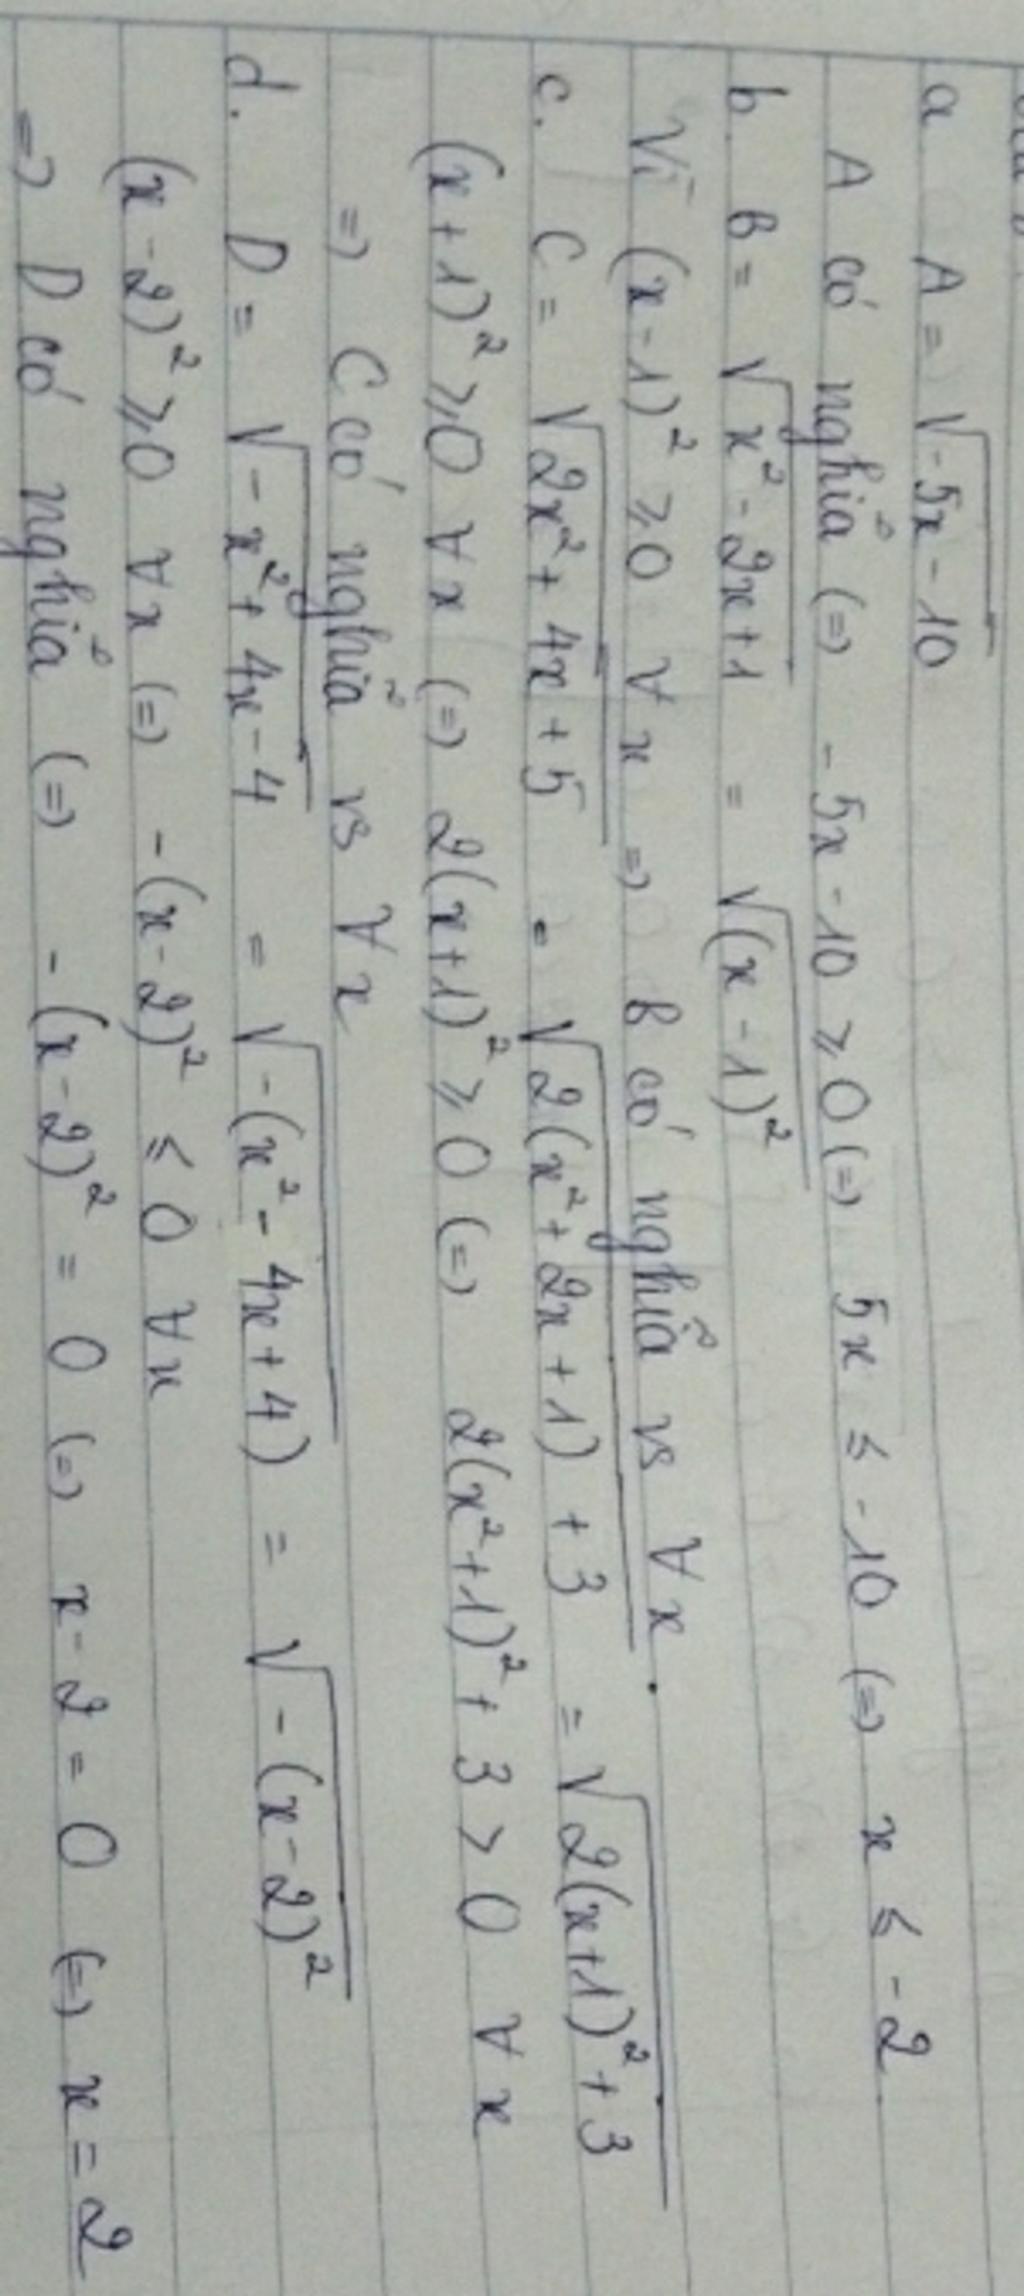 a A = √(-5x - 10)
A có nghĩa (=) -5x - 10 ≥ 0 (=) 5x ≤ -10 (=) x ≤ -2
b. B = √(x² - 2x + 1) = √((x - 1)²)
Vì (x - 1)² ≥ 0 ∀x => B có nghĩa vs ∀x.
c. C = √(2x² + 4x + 5) = √(2(x² + 2x + 1) + 3) = √(2(x+1)² + 3)
(x + 1)² ≥ 0 ∀x (=) 2(x+1)² ≥ 0 (=) 2(x²+1)² + 3 > 0 ∀x
=) C có nghĩa vs ∀x
d. D = √(-x² + 4x - 4) = √(-(x² - 4x + 4)) = √(-(x-2)²)
(x - 2)² ≥ 0 ∀x (=) -(x - 2)² ≤ 0 ∀x
=) D có nghĩa (=) -(x - 2)² = 0 (=) x - 2 = 0 (=) x = 2